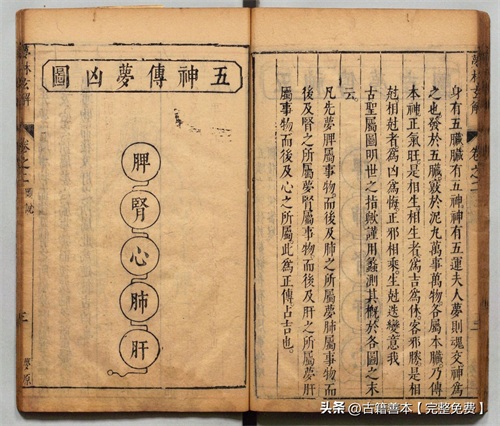 夢林玄解
卷之二
身有五臟臟有五神神有五運夫人夢則魂交神為
之也發於五臟竅於泥丸萬事萬物各屬本臟乃傳
本神正氣旺是相生相生者為吉為休客邪勝是相
尅相尅者為凶為悔正邪相乘生尅迭變意我
古聖屬圖明世之指歟謹用蠡測其概於各圖之末
云
凡先夢脾屬事物而後及肺之所屬夢肺屬事物而
後及腎之所屬夢腎屬事物而後及肝之所屬夢肝
屬事物而後及心之所屬此為正傳占吉也
五神傳夢凶圖
脾
腎
心
肺
肝
夢林玄解
卷之二
三
夢原
头条 @古籍善本【完整免费】